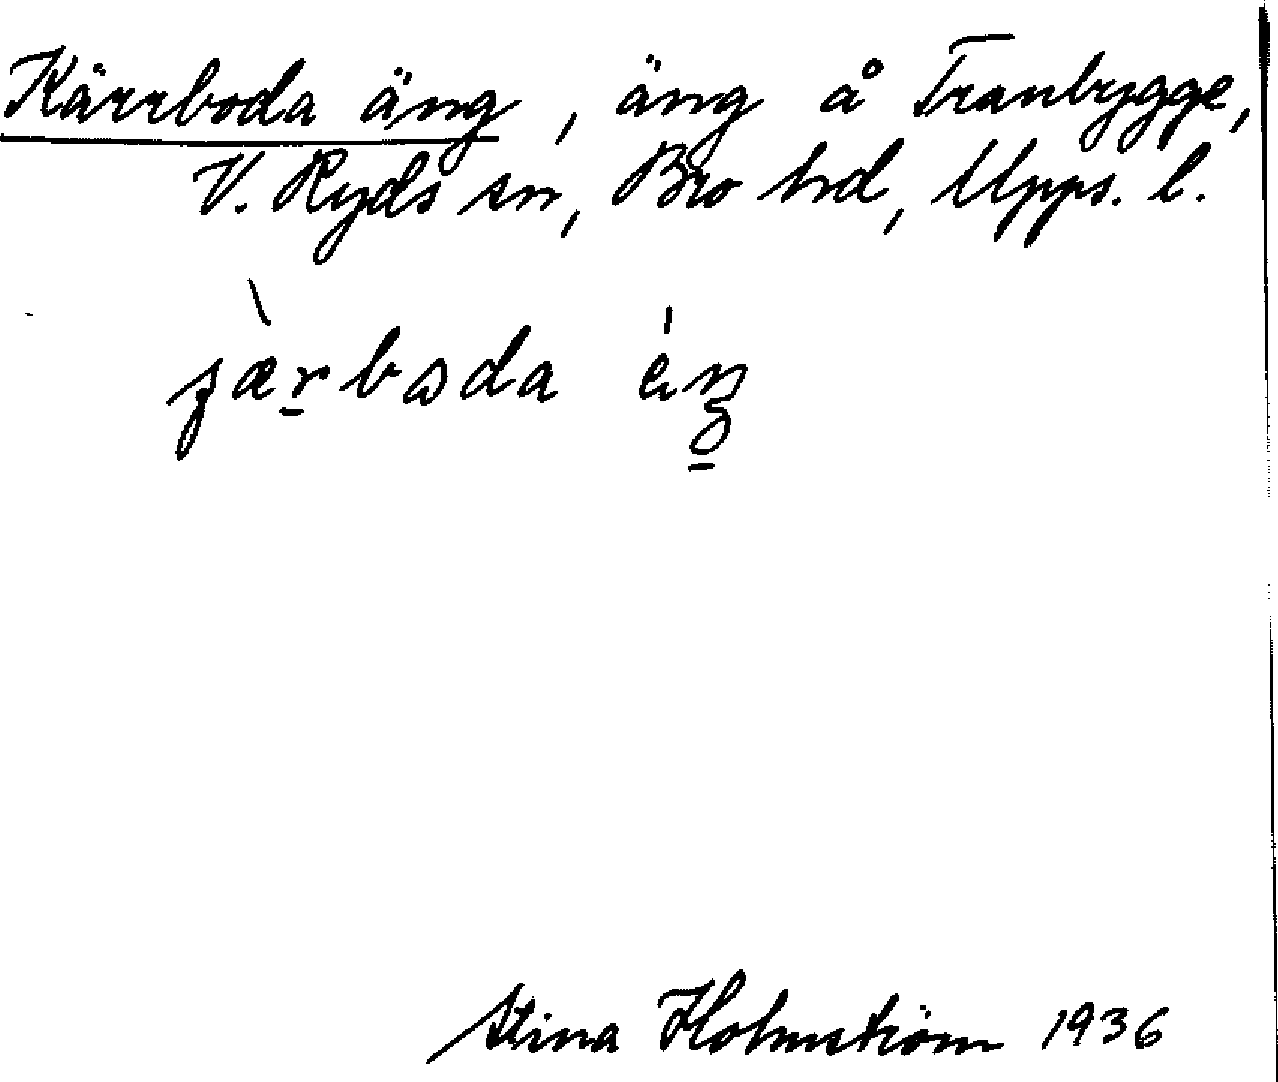 Kärrboda äng, äng å Tranbygge,
V. Ryds sn, Bro hd, Upps. l.
Stina Holmström 1936